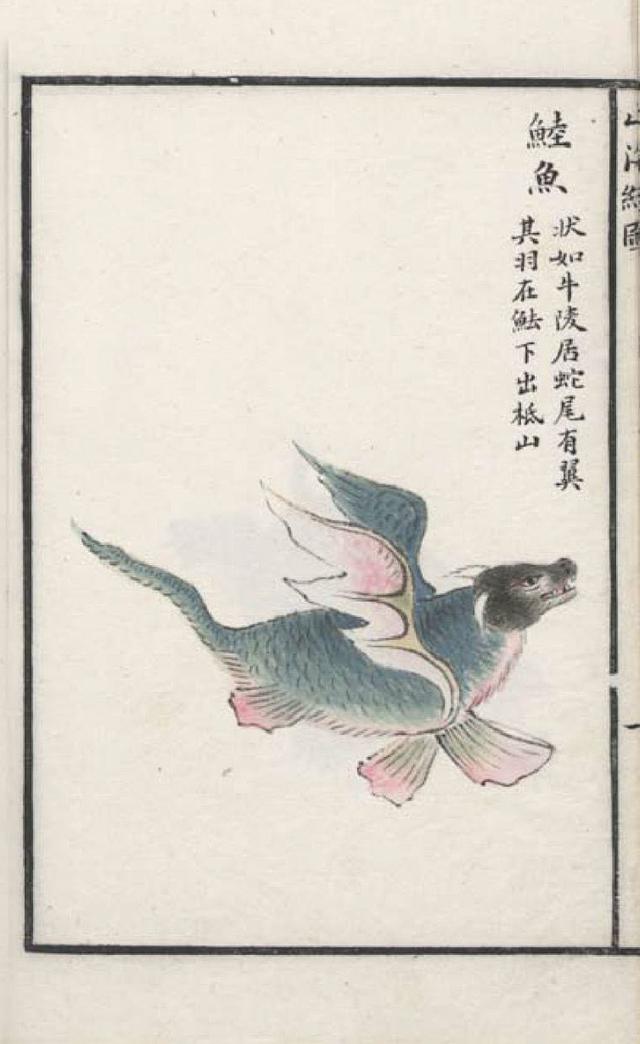 山海經圖
一
鯥魚
狀如牛陵居蛇尾有翼
其羽在魼下出柢山